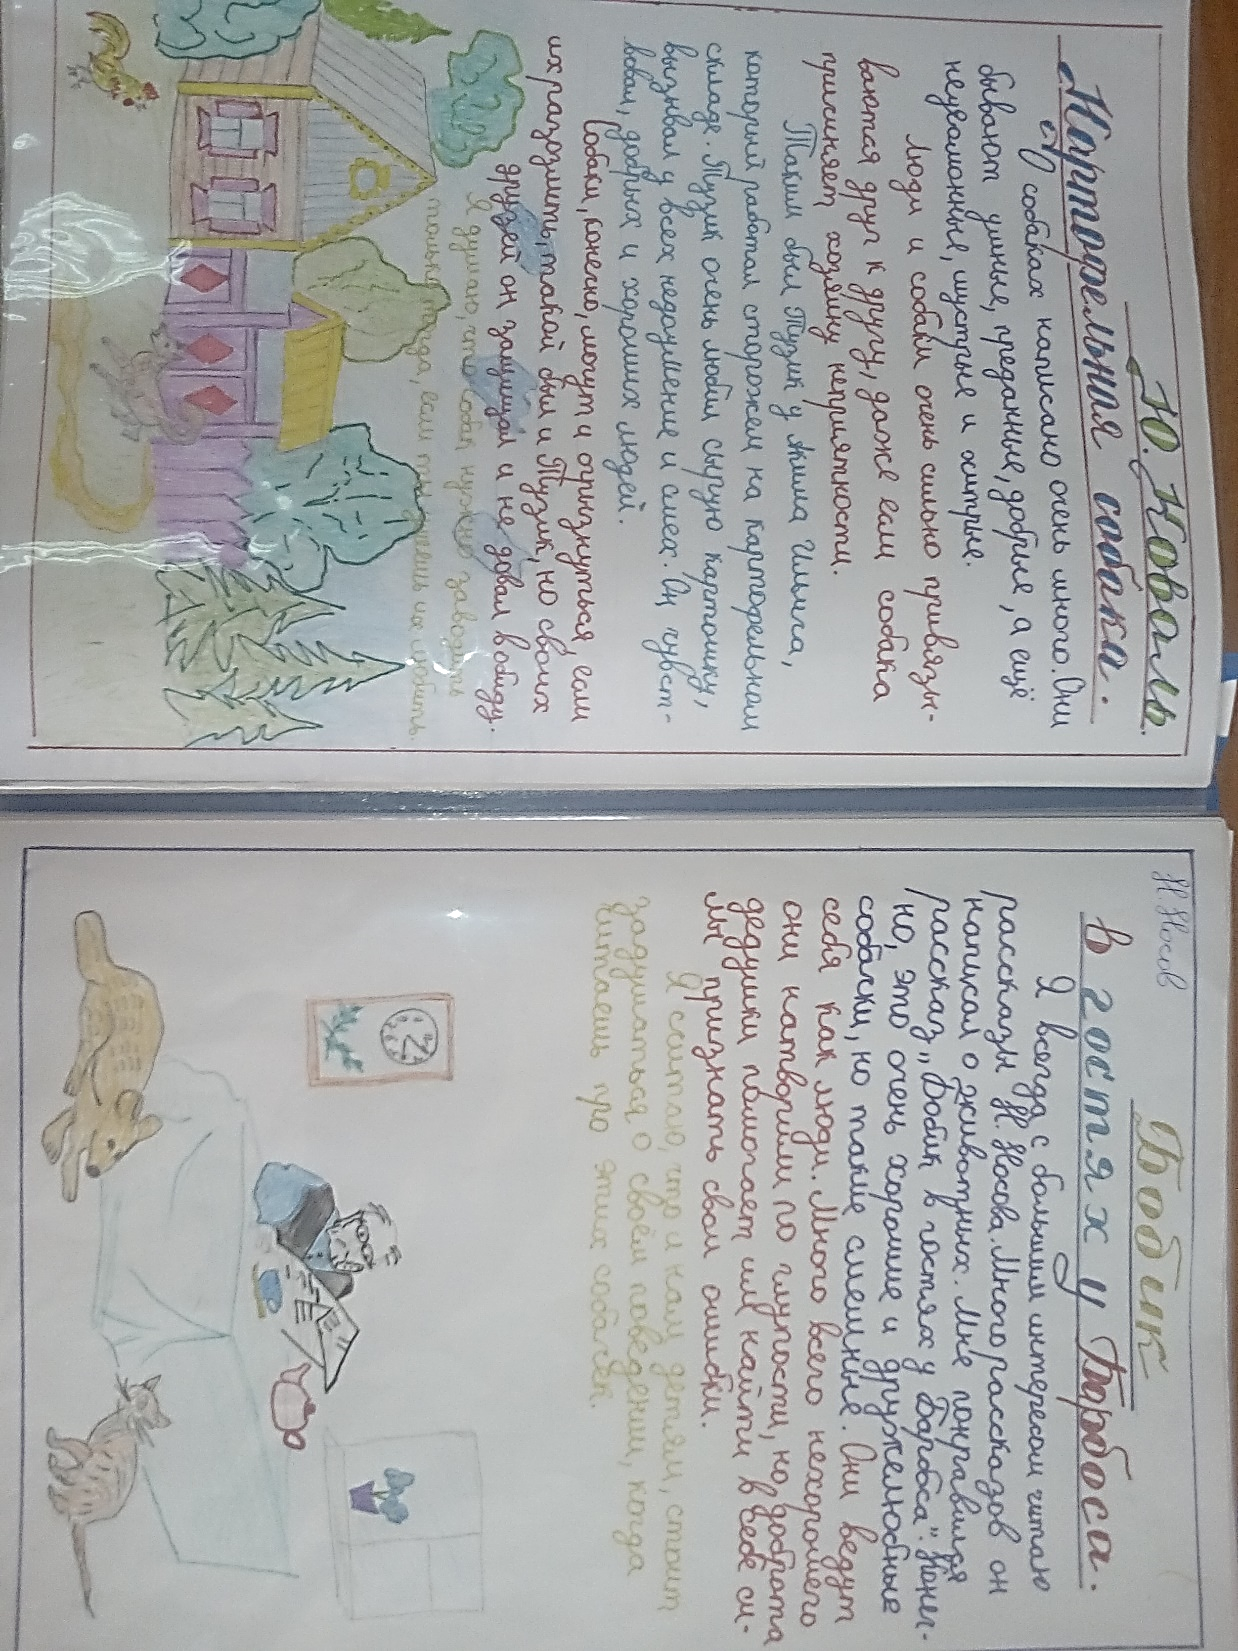 Ю. Коваль.
Картофельная собака.
О собаках написано очень много. Они
бывают умные, преданные, добрые, а ещё
неугомонные, шустрые и хитрые.
Люди и собаки очень сильно привязы-
ваются друг к другу, даже если собака
присиняет хозяину неприятности.
Таким был Тузик у жила Имыла,
который работал сторожем на картофельном
складе. Тузик очень любил сырую картошку,
вызывал у всех недоумение и смех. Он чувст-
вовал, добрых и хороших людей.
Собаки, конечно, могут и огрызнуться, если
их разозлить, такой был и Тузик, но своих
друзей он защищал и не давал в обиду.
Я думаю, что собак нужно заводить
только тогда, если ты будешь их любить.
Н. Носов
Бобик
в гостях у Барбоса.
Я всегда с большим интересом читаю
рассказы Н. Носова. Много рассказов он
написал о животных. Мне понравился
рассказ „Бобик в гостях у Барбоса". Конеч-
но, это очень хорошие и дружелюбные
собачки, но такие смешные. Они ведут
себя как люди. Много всего нехорошего
они натворили по глупости, но, доброта
дедушки помогает им найти в себе си-
лы признать свои ошибки.
Я считаю, что и нам детям, стоит
задуматься о своём поведении, когда
читаешь про этих собачек.